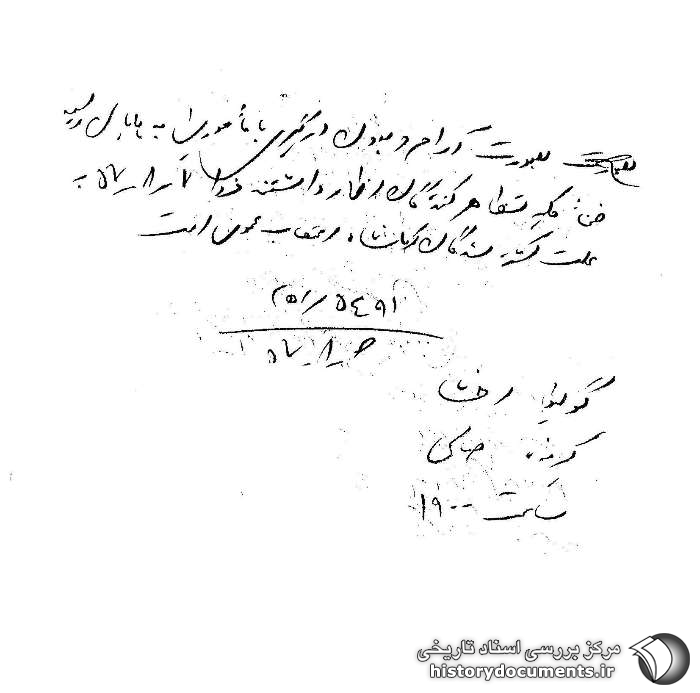 بصورت آرام و بدون درگیری با مأمورین به پایان رسید
ضمناً تظاهرکنندگان اظهار داشتند فردا ۷ر۸ر۵۷ به
علت کشته شدگان کرمانشاه اعتصاب عمومی است
۵۴۹۱
ر۸ر۵۷
گوینده
گیرنده
ساعت ۱۹۰۰
مرکز بررسی اسناد تاریخی
historydocuments.ir